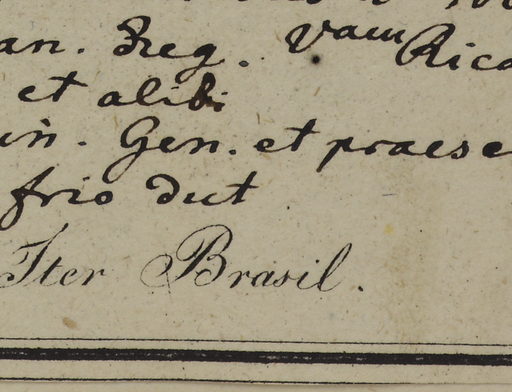 an. Freg. Vam Rica
et alibi
in. Gen. et praese
frio dut
Iter Brasil.